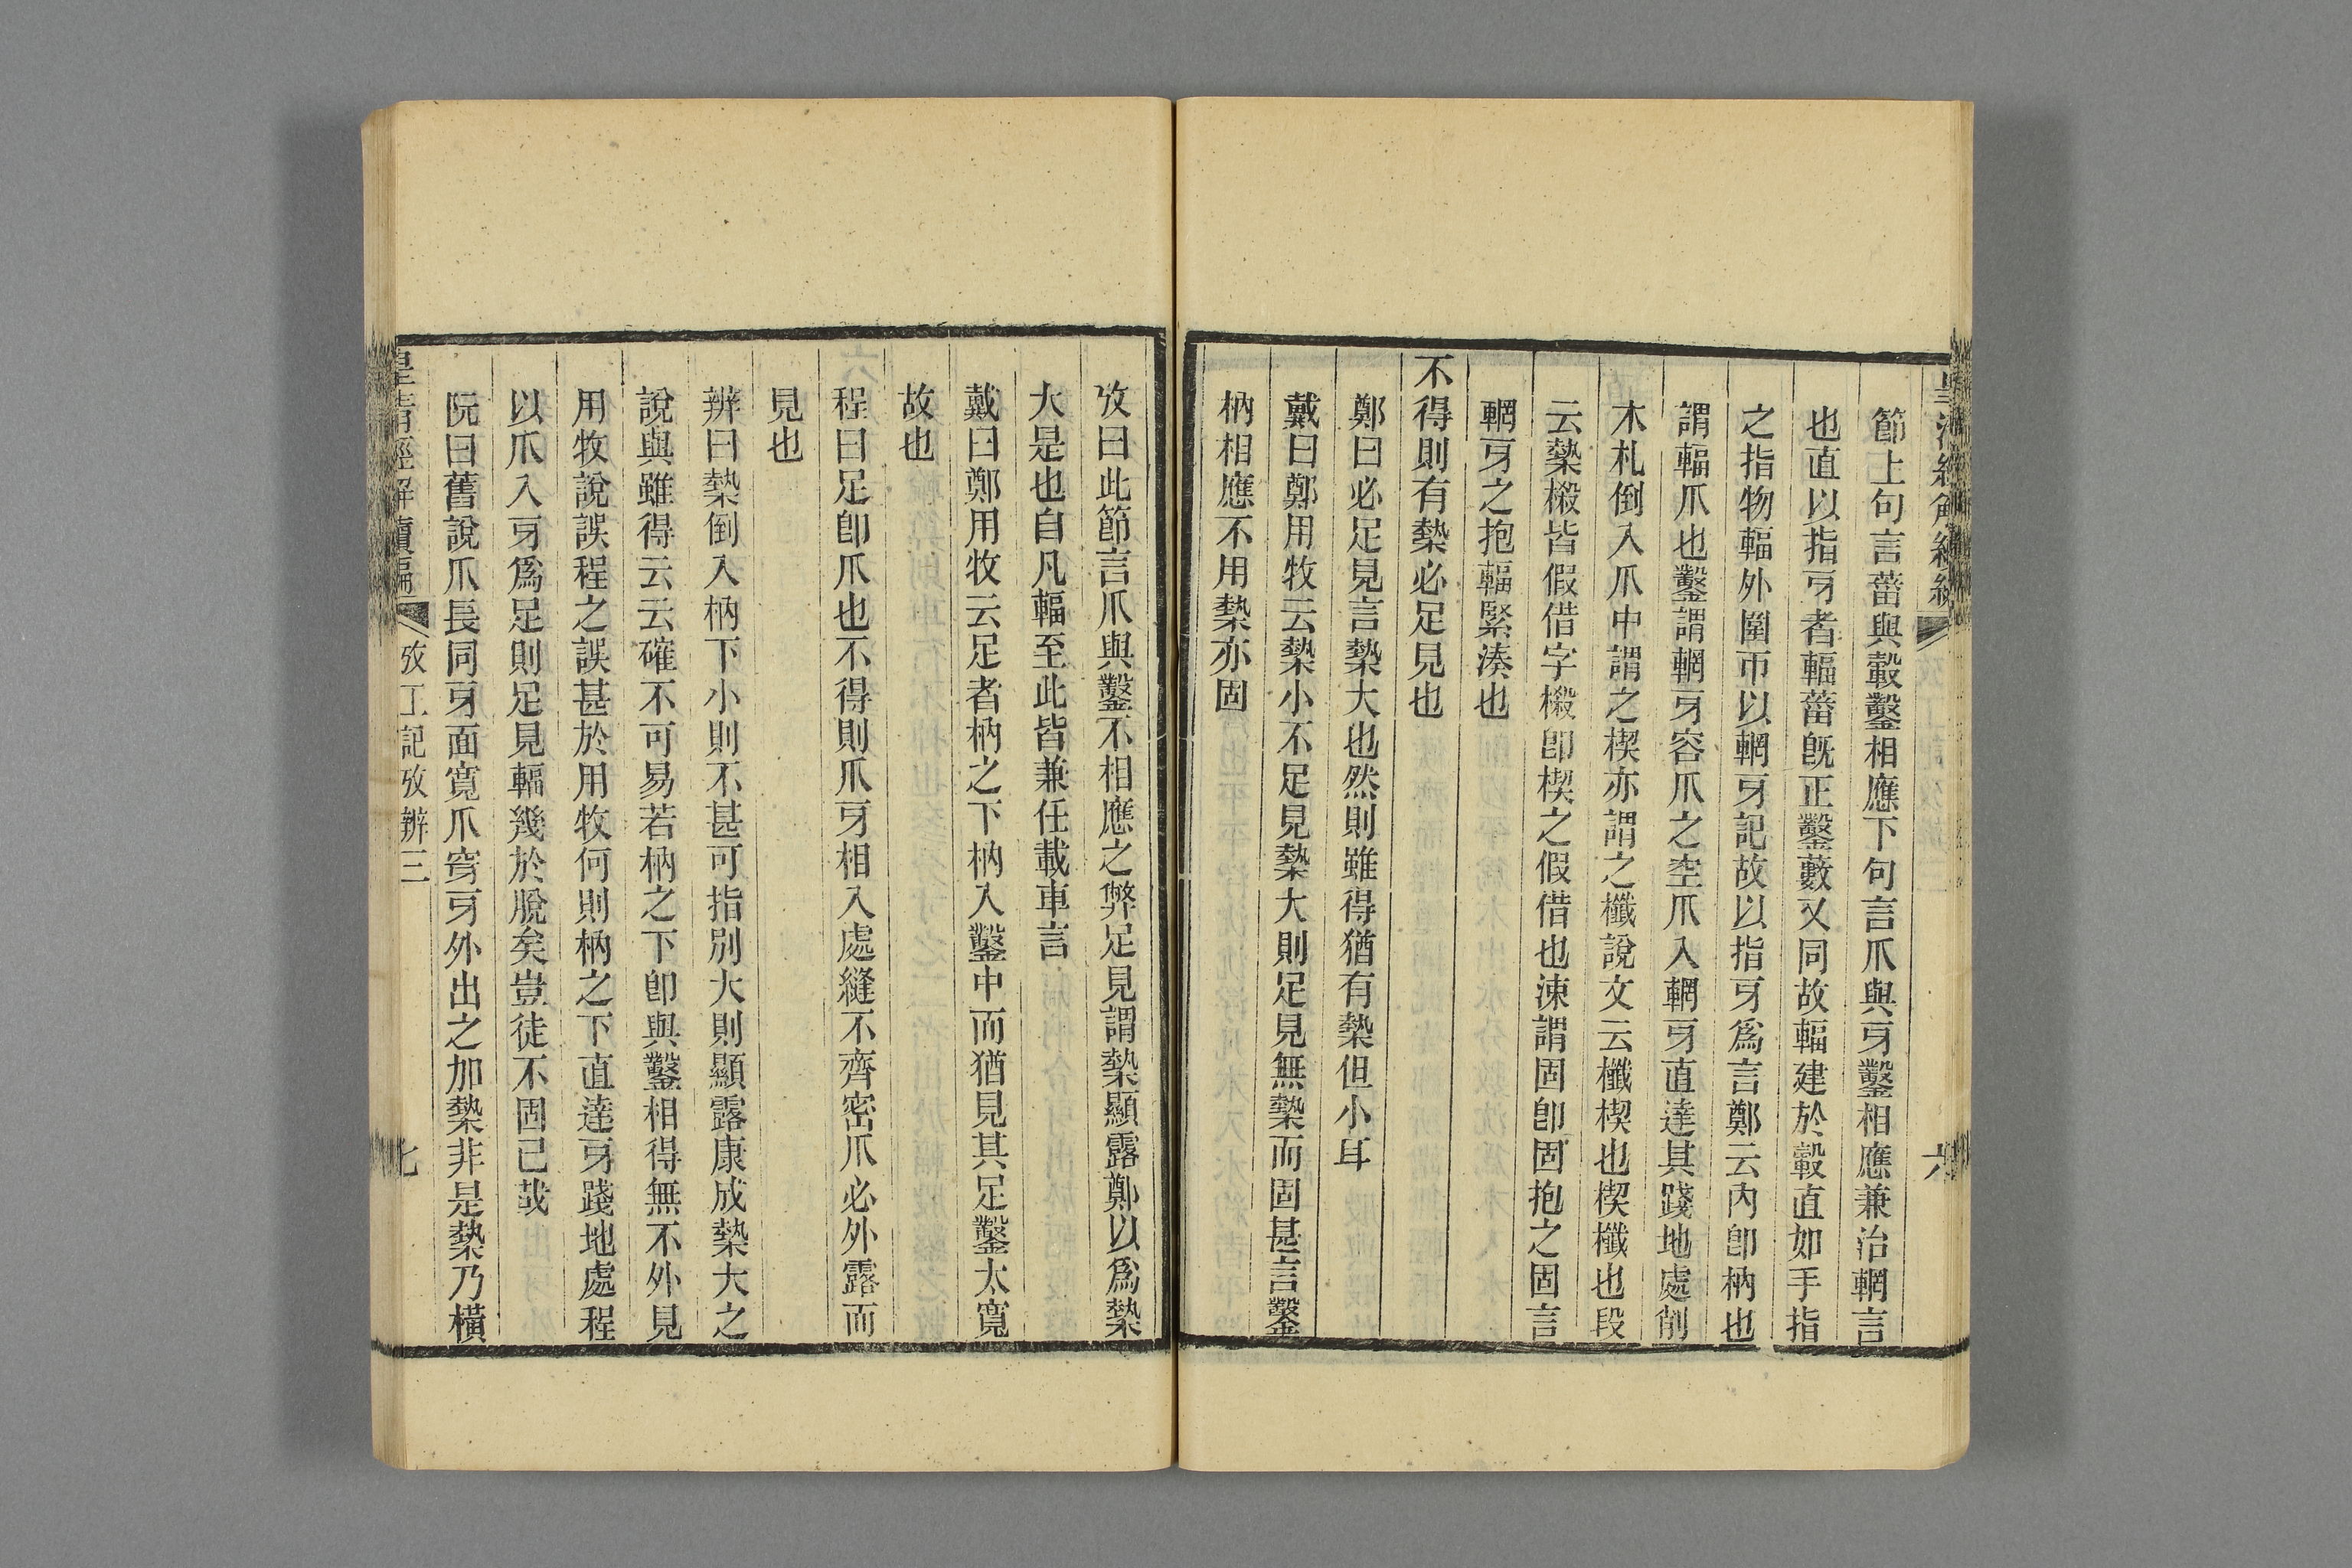 節上句言菑與轂鑿相應下句言爪與牙鑿相應兼治輞言
也直以指牙者輻菑旣正鑿藪又同故輻建於轂直如手指
之指物輻外圍帀以輞牙記故以指牙爲言鄭云內卽枘也
謂輻爪也鑿謂輞牙容爪之空爪入輞牙直達其踐地處削
木札倒入爪中謂之楔亦謂之櫼說文云櫼楔也楔櫼也段
云槷樧皆假借字樧卽楔之假借也涑謂固卽固抱之固言
輞牙之抱輻緊湊也
不得則有槷必足見也
鄭曰必足見言槷大也然則雖得猶有槷但小耳
戴曰鄭用牧云槷小不足見槷大則足見無槷而固甚言鑿
枘相應不用槷亦固
攷曰此節言爪與鑿不相應之弊足見謂槷顯露鄭以爲槷
大是也自凡輻至此皆兼任載車言
戴曰鄭用牧云足者枘之下枘入鑿中而猶見其足鑿太寬
故也
程曰足卽爪也不得則爪牙相入處縫不齊密爪必外露而
見也
辨曰槷倒入枘下小則不甚可指別大則顯露康成槷大之
說與雖得云云確不可易若枘之下卽與鑿相得無不外見
用牧說誤程之誤甚於用牧何則枘之下直達牙踐地處程
以爪入牙爲足則足見輻幾於脫矣豈徒不固已哉
阮曰舊說爪長同牙面寬爪穿牙外出之加槷非是槷乃橫
皇清經解續編
攷工記攷辨三
七